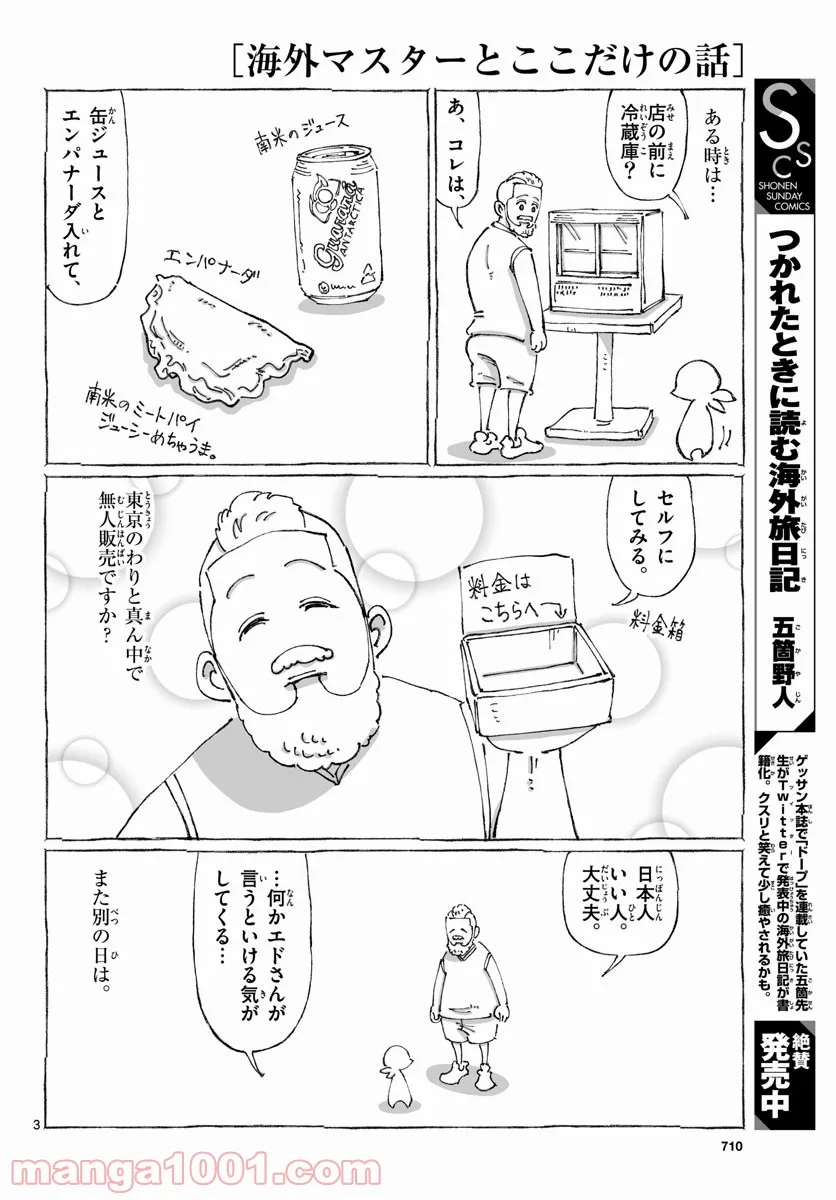 ［海外マスターとここだけの話］
ある時は…
店の前に
冷蔵庫？
あ、コレは、
南米のジュース
Guaraná
ANTARCTICA
缶ジュースと
エンパナーダ入れて、
エンパナーダ
南米のミートパイ
ジューシーめちゃうま。
セルフに
してみる。
料金は
こちらへ→
料金箱
東京のわりと真ん中で
無人販売ですか？
日本人
いい人。
大丈夫。
…何かエドさんが
言うといける気が
してくる…
また別の日は。
SSC
SHONEN
SUNDAY
COMICS
つかれたときに読む海外旅日記
五箇野人
ゲッサン本誌で「ドープ」を連載していた五箇先
生がTwitterで発表中の海外旅日記が書
籍化。クスリと笑えて少し癒やされるかも。
絶賛
発売中
3
710
manga1001.com